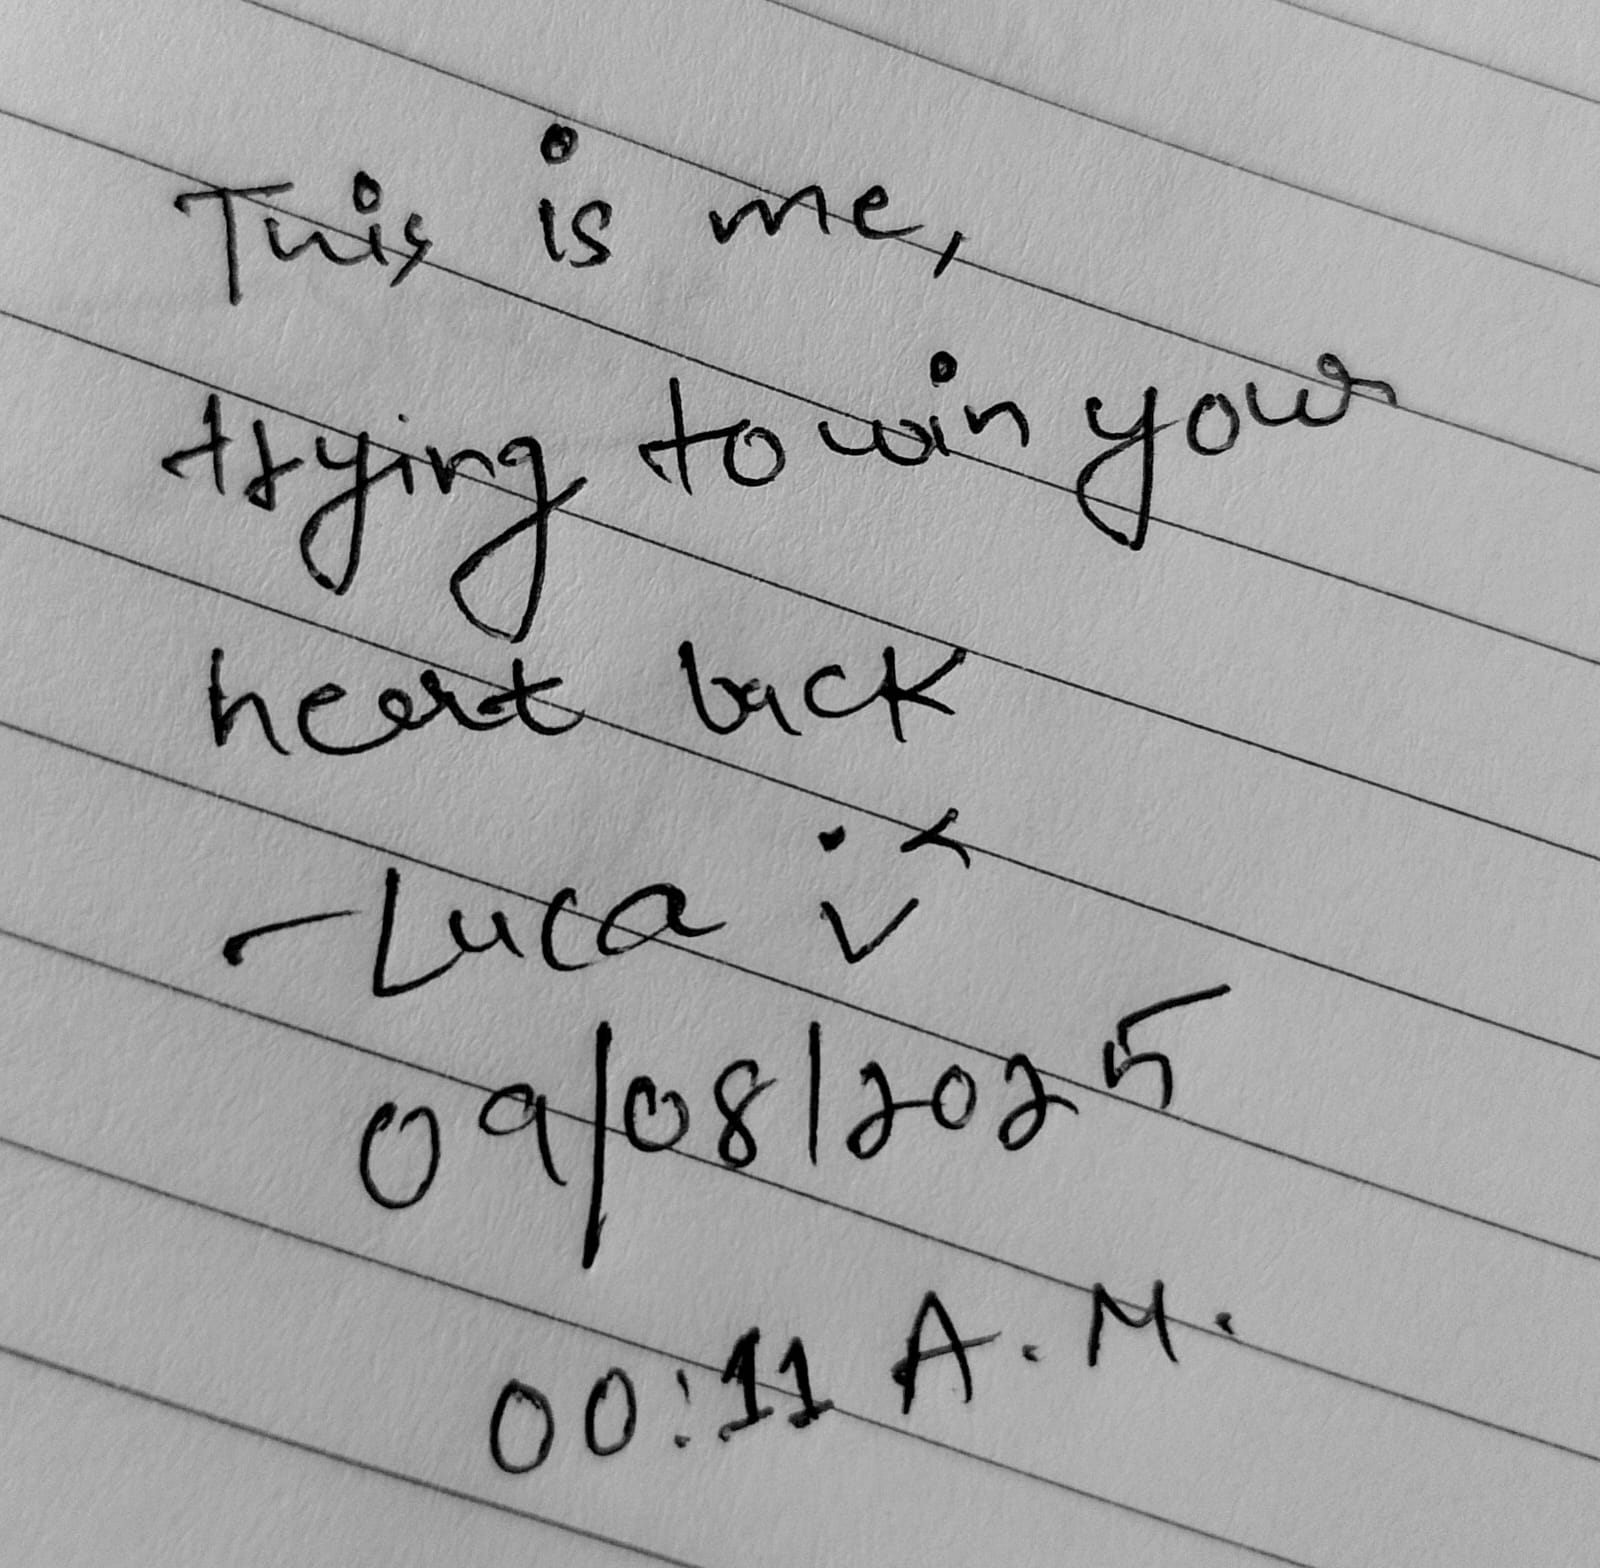 This is me,
trying to win your
heart back
-Luca
09/08/2025
00:11 A.M.